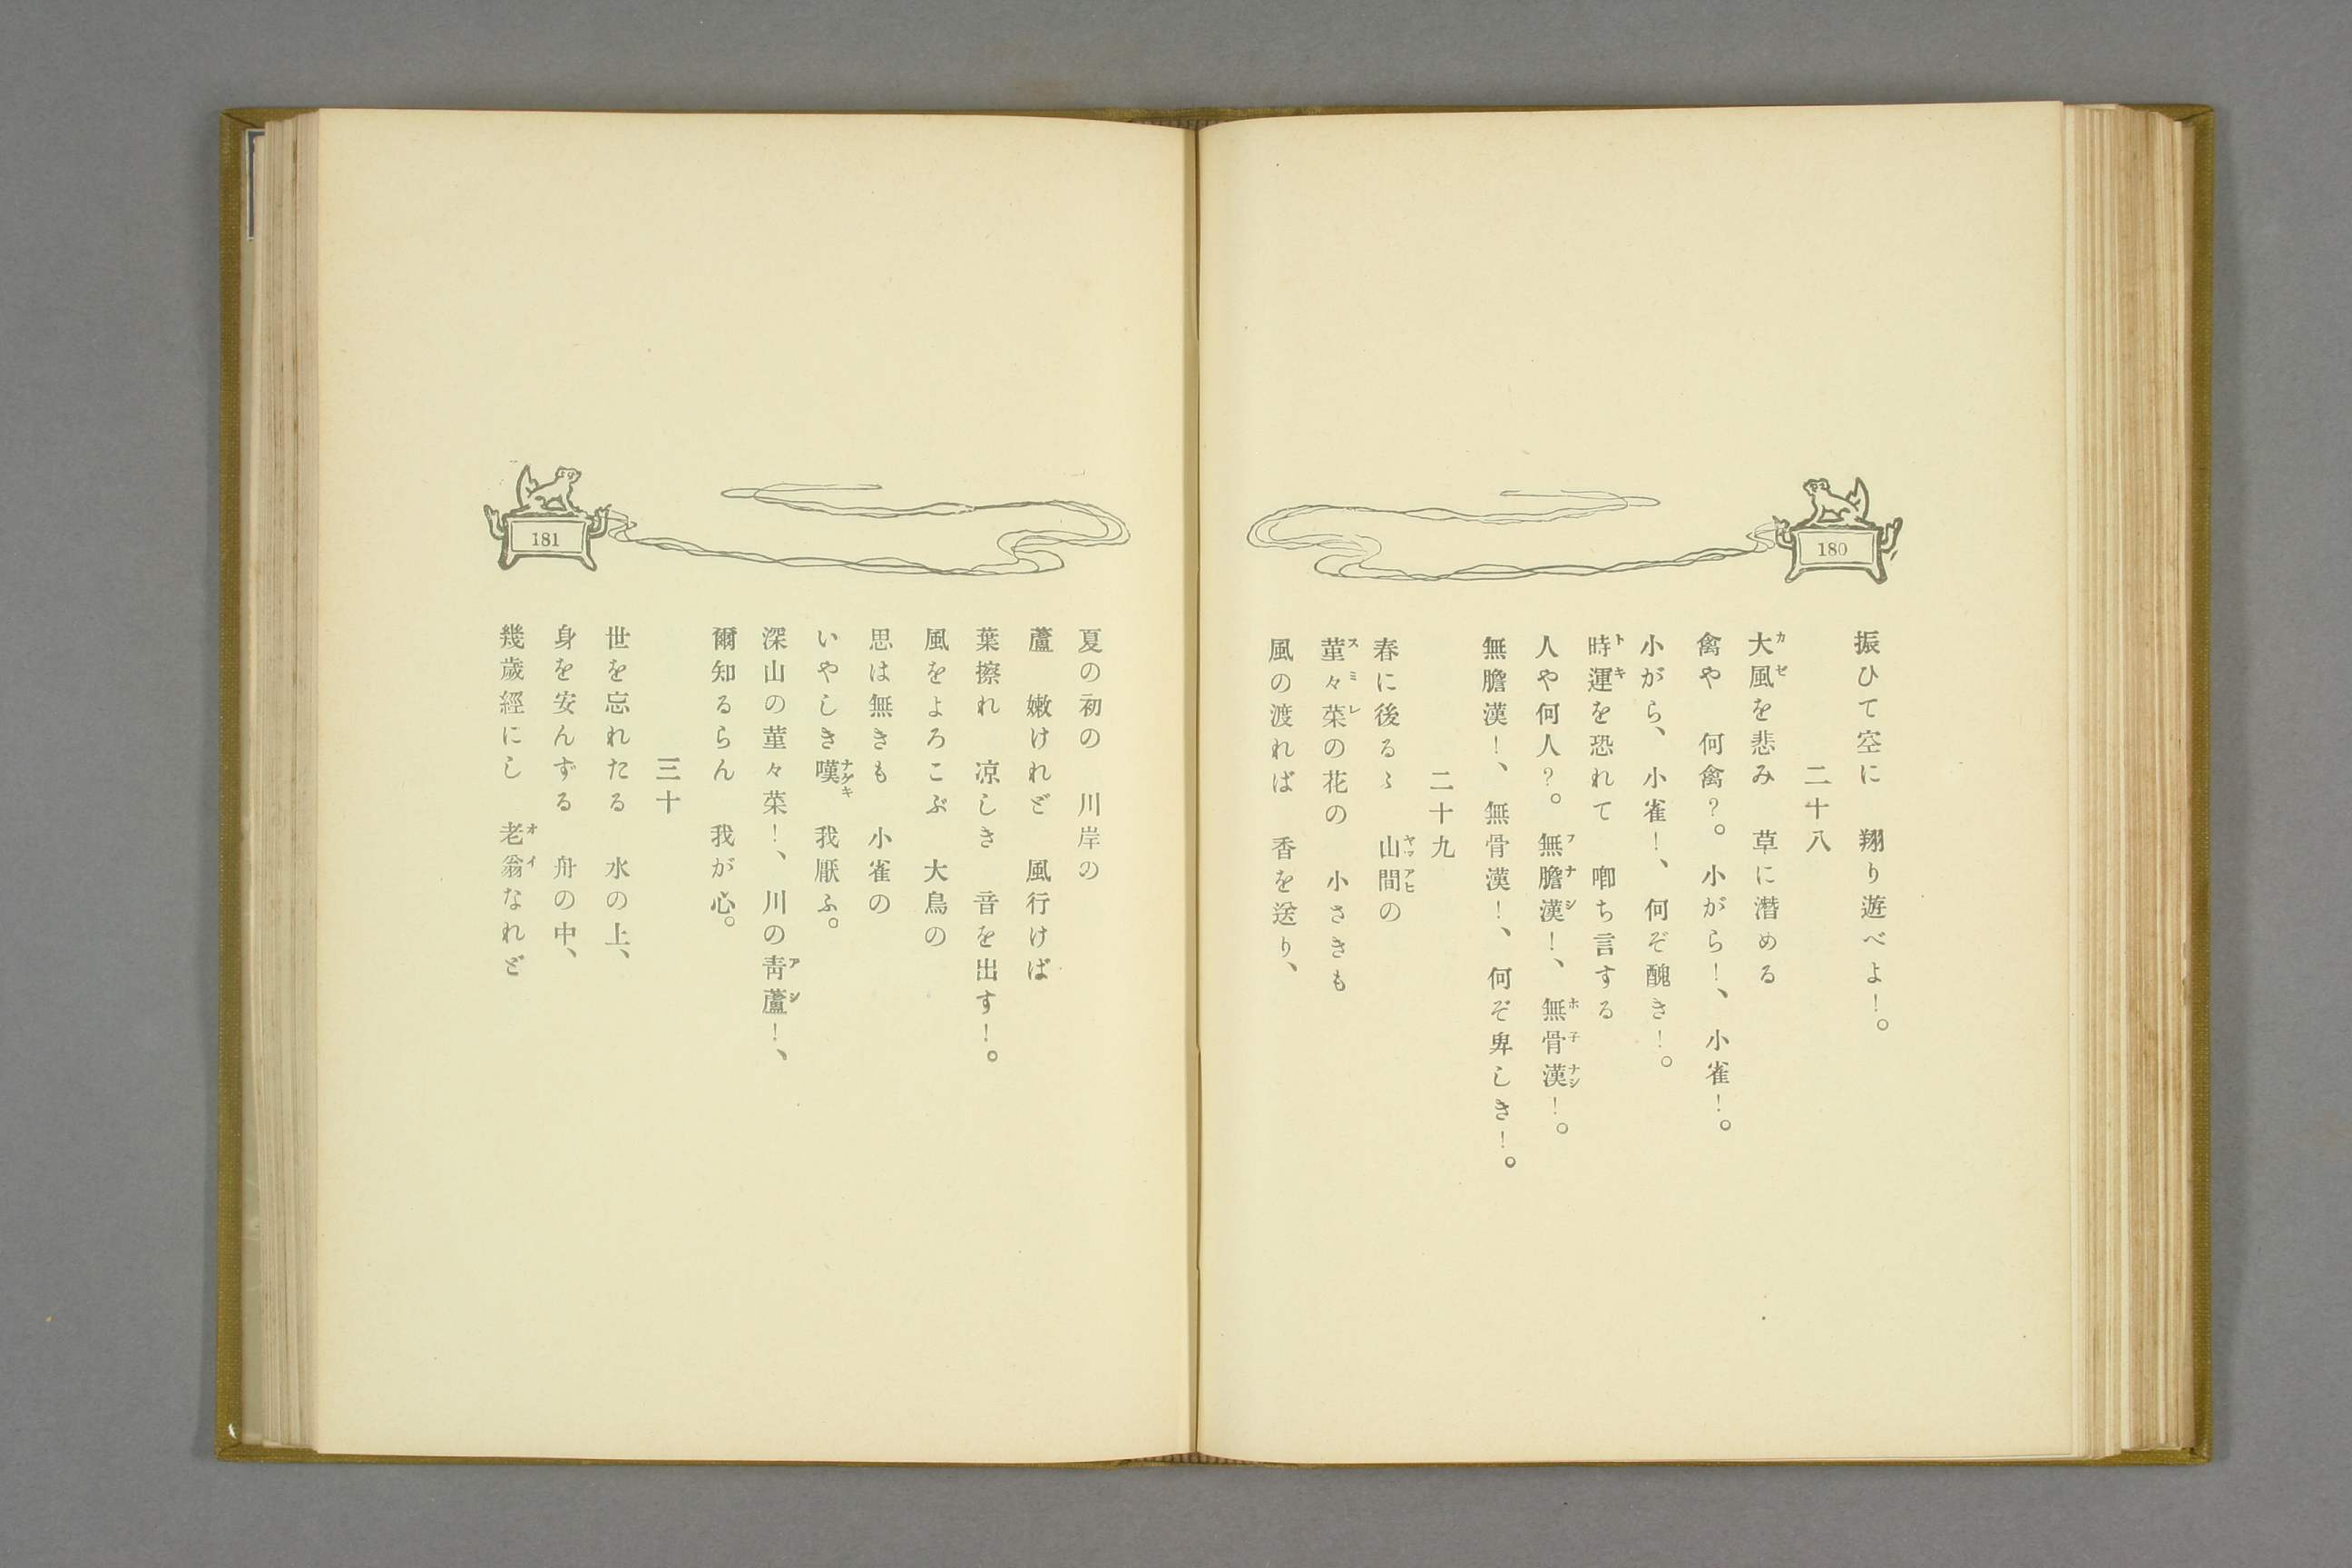 180
振ひて空に　翔り遊べよ！。
二十八
大風を悲み　草に潛める
カゼ
禽や　何禽？。小がら！、小雀！。
小がら、小雀！、何ぞ醜き！。
時運を恐れて　喞ち言する
トキ
人や何人？。無膽漢！、無骨漢！。
フナシ　ホ子ナシ
無膽漢！、無骨漢！、何ぞ卑しき！。
二十九
春に後るゝ　山間の
ヤマアヒ
菫々菜の花の　小さきも
スミレ
風の渡れば　香を送り、
181
夏の初の　川岸の
蘆　嫩けれど　風行けば
葉擦れ　凉しき　音を出す！。
風をよろこぶ　大鳥の
思は無きも　小雀の
いやしき嘆　我厭ふ。
ナゲキ
深山の菫々菜！、川の靑蘆！、
アシ
爾知るらん　我が心。
三十
世を忘れたる　水の上、
身を安んずる　舟の中、
幾歲經にし　老翁なれど
オイ